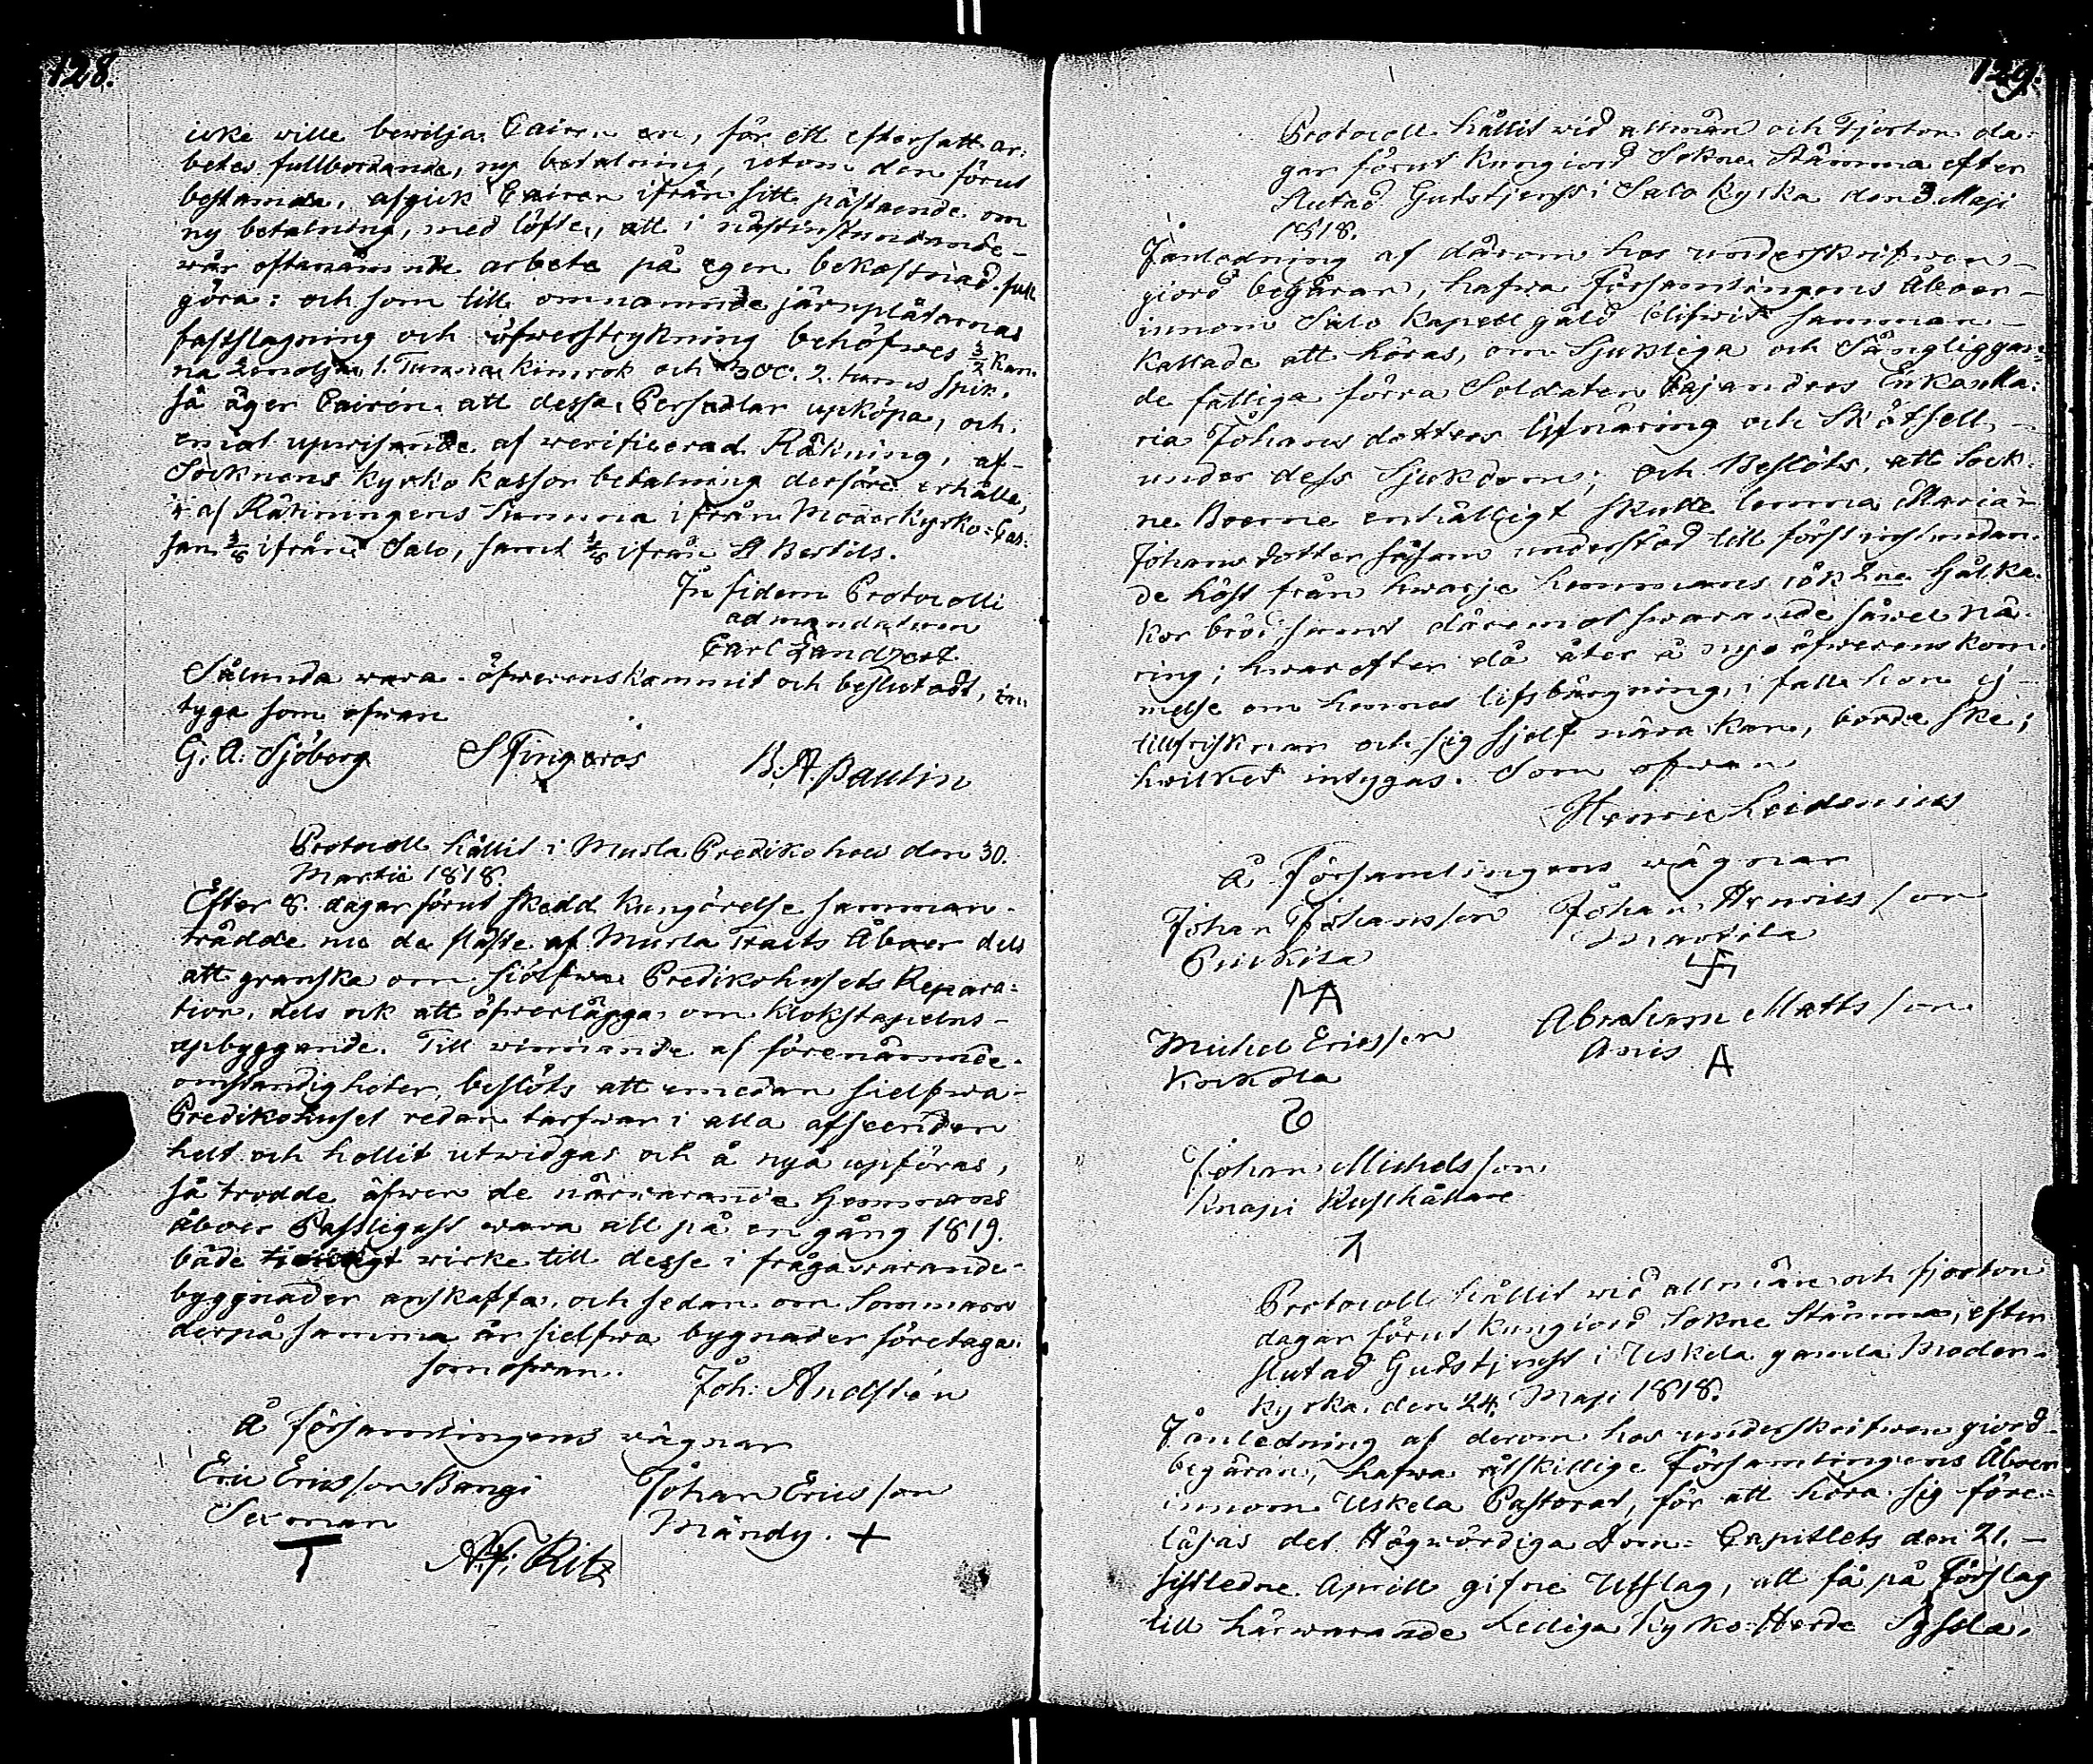 128.
icke wille bewilja Cairen en, för ett eftersatt ar-
betes fullbordande, ny betalning, utom den förut
bestämda, afgick Cairen ifrån sitt påstående om
ny betalning, med löfte, att i nästinstundande
wår oftanämnde arbete på egen bekostnad full
göra: och som till omnämnde järnplåtarnas
fastslagning och öfwerstrykning behöfwes 3/2 Kan-
na linolja, 1. Tunna kimrök och 300. 2. tums spik,
så äger Cairen att dessa Persedlar upköpa, och
emot upwisande af werificerad Räkning, af
Socknens Kyrko kassor betalning derföre erhålla,
af Räkningens Summa ifrån Moderkyrko-Cas-
san 3/8 ifrån Salo, samt 1/8 ifrån St Bertils.
In fidem Protocolli
ad mandatum
Carl Zandzert
Sålunda wara öfwerenskommit och beslutadt, in-
tyga som ofwan
G. A. Sjöberg S Fingeroos B. A. Paulin
Protocoll hållit i Murla Predikohus den 30.
Martii 1818.
Efter 8. dagar förut skedd kungörelse samman-
trädde nu de fläste af Murla Tracts Åboer dels
att granska om sjelfwa Predikohusets Repara-
tion, dels ock att öfwerlägga om Klokstapelns
upbyggande. Till winnande af förenämnde
omständigheter, beslöts att emedan sielfwa
Predikohuset redan tarfwar i alla afseenden
helt och hollit utwidgas och å nyå upföras,
så trodde äfwen de närwarande Hemmans
åboer Passligast wara att på en gång 1819.
både wirke till desse i fråga warande
byggnader anskaffa, och sedan om Sommaren
derpå samma år sielfwa bygnader företaga.
som ofwan. Joh: Andstén
Å församlingens wägnar
Eric Ericsson Bangi Johan Ericsson
Sexman Mändy. +
T A. F. Ritz
129.
Protocoll hållit wid allmän och Fjorton da-
gar förut kungiord Sokne Stämma efter
slutad Gudstjenst i Salo Kyrka den 3 Maji
1818.
I anledning af därom hos underskrifwen
giord begäran, hafwa Församlingens Åboer
innom Salo Kapell gäld blifwit samman-
kallade att höras, om Sjukliga och Sängliggan-
de fattiga förra Soldaten Pajandres Enka Ma-
ria Johans dotters lifnäring och Skötsell
under dess Sjukdom; och Beslöts, att Sock-
ne Boerne enhälligt skulle lemna Maria
Johans dotter såsom understöd till först instundan-
de höst från hwarje hemmans rök 2ne hålka-
kor bröd samt däremot swarande såwel nä-
ring; hwarefter då åter å nyo öfwerenskom-
melse om hennes lifsbärgning, i fall hon ej
tillfrisknar och sig sjelf nära kan, borde ske;
hwilket intygas. Som ofwan
Henric Leidenius
Å Församlingens wägnar
Johan Johansson Johan Henricsson
Puckila Mardila
Michel Ericsson Abraham Mattsson
Kockola Anis A
Johan Michelsson
Knapi Rusthållare
Protocoll hållit wid allmän och fjorton
dagar förut kungiord Sokne Stämma, efter
slutad Gudstjenst i Uskela gamla Moder-
kyrka, den 24. Maji 1818.
I anledning af derom hos underskrifwen giord
begäran, hafwa åtskillige Församlingens Åboer
innom Uskela Pastorat, för att höra sig före-
läsas det Högwördiga Dom-Capitlets den 21.
sistledne Aprill gifne Utslag, att få på Förslag
till härwarande Lediga Kyrko-Herde Syssla,